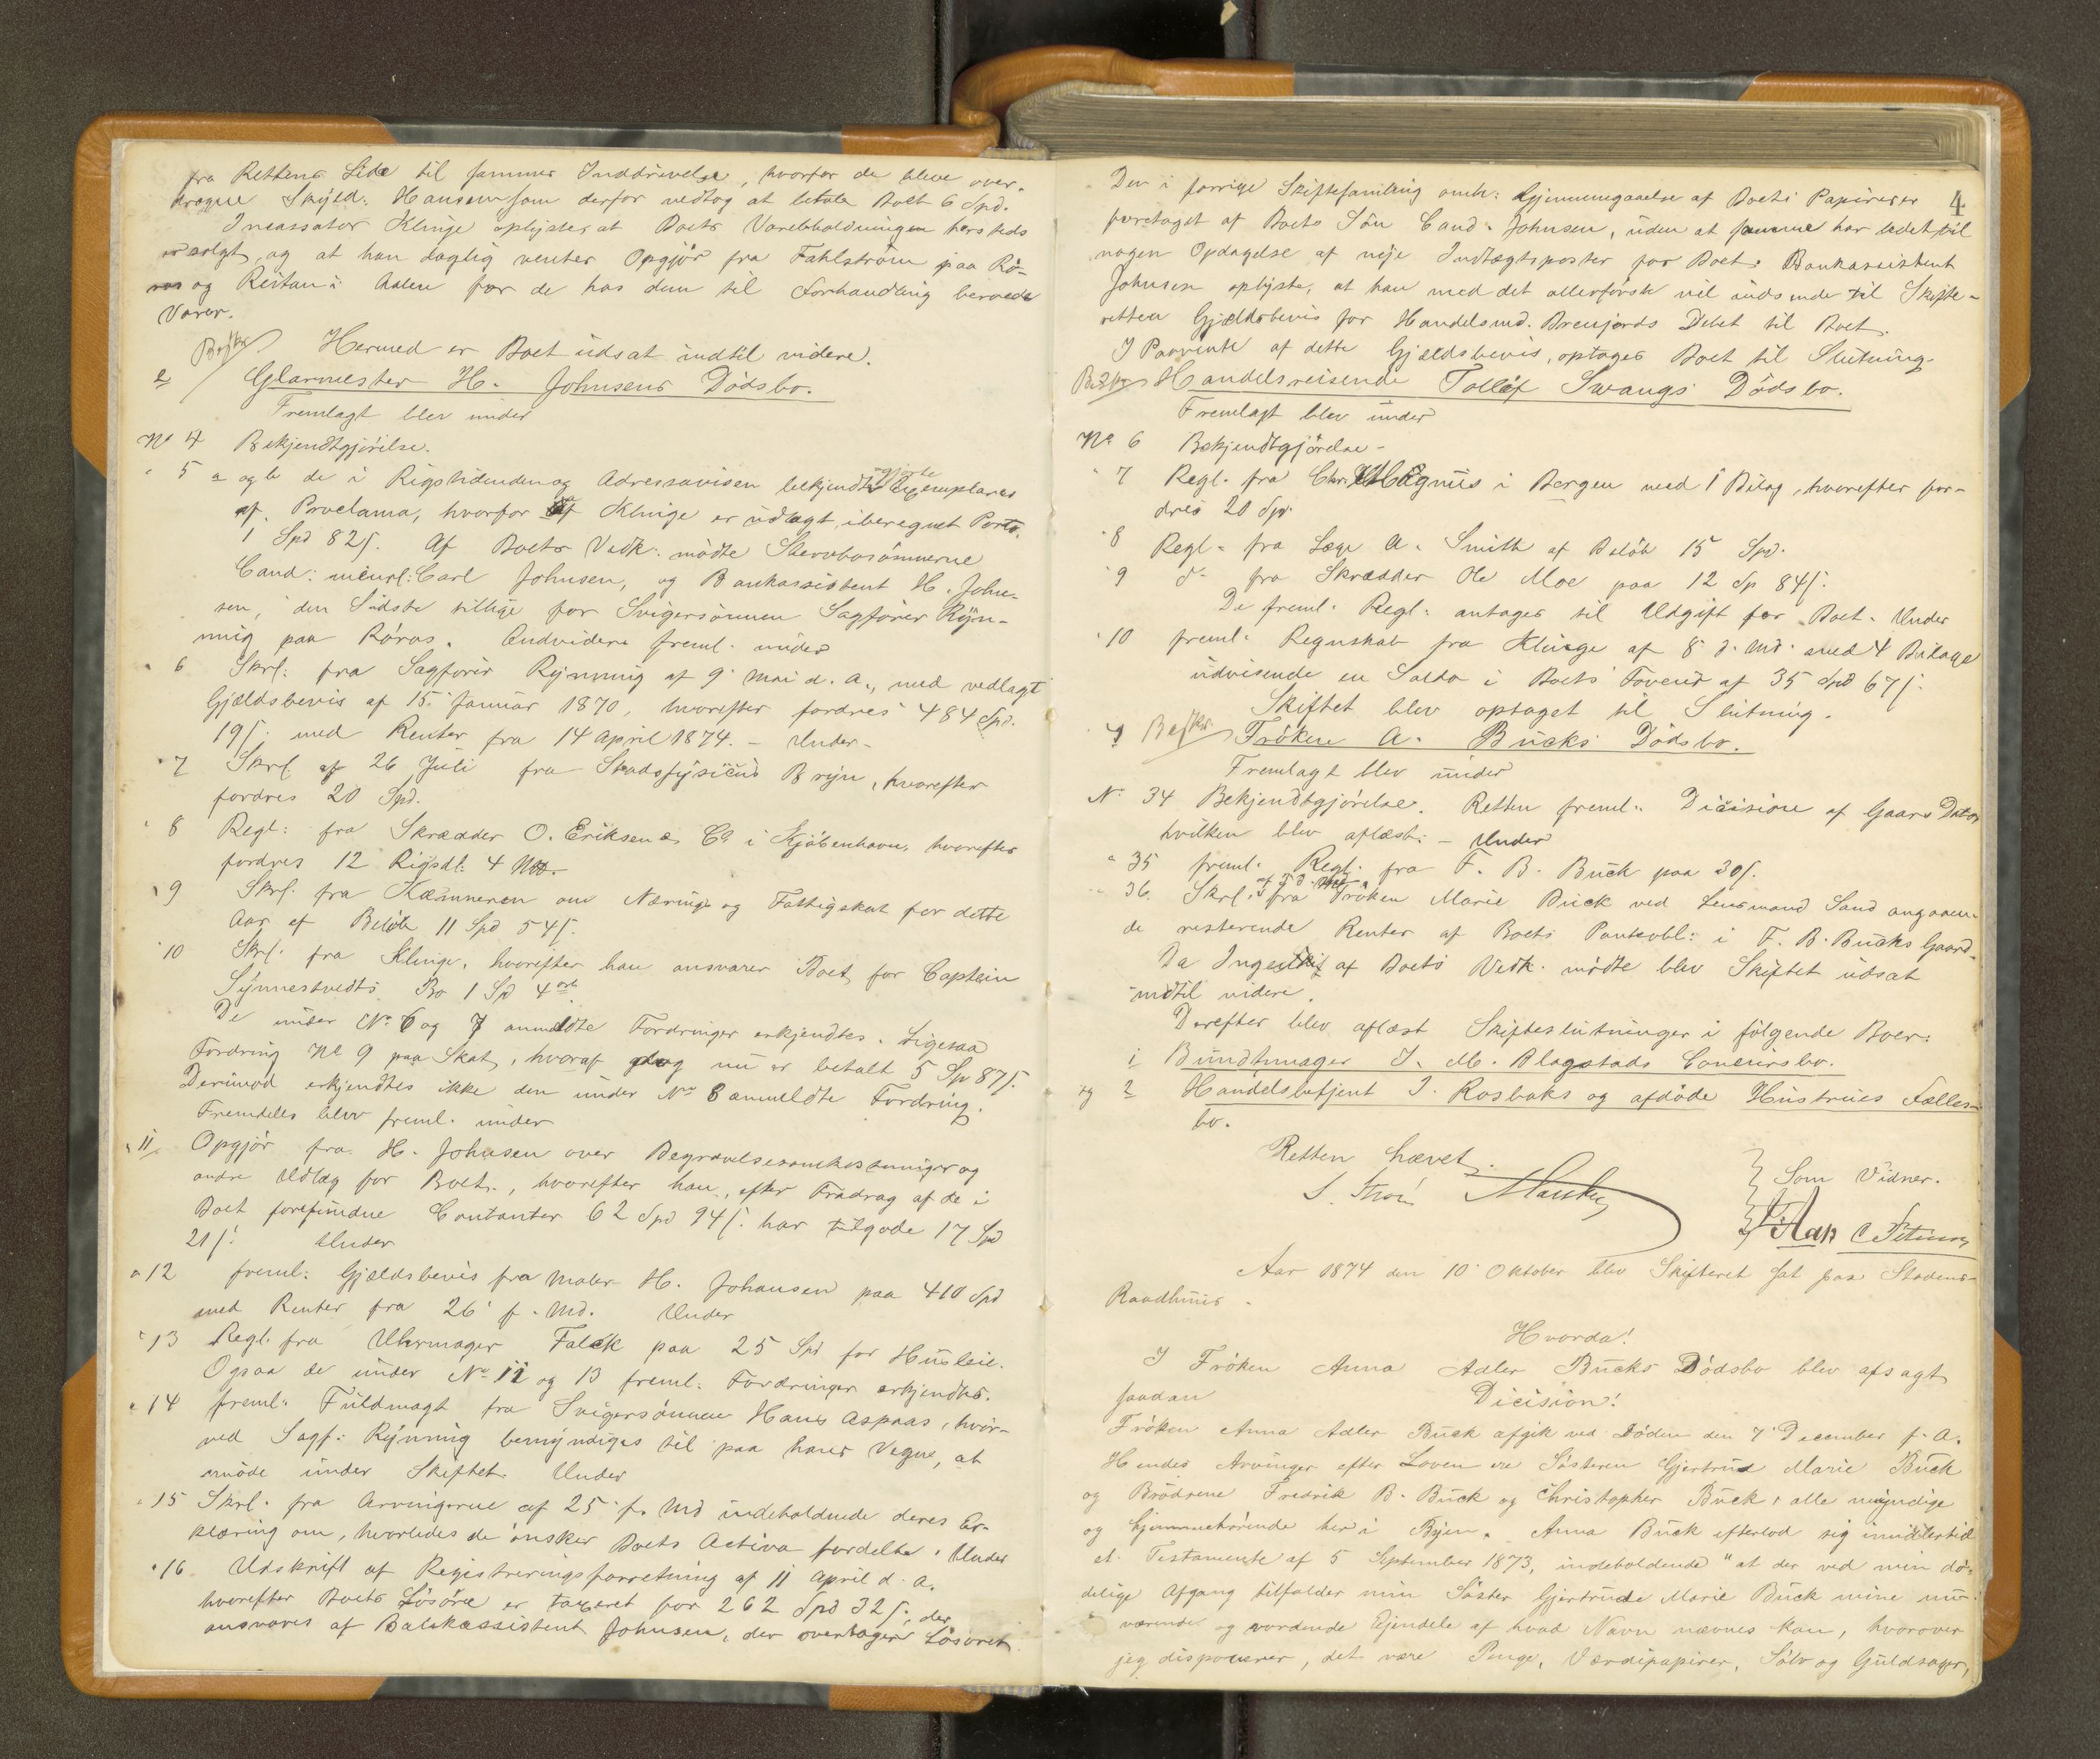 fra Rettens Side til sammes Inddrivelse, hvorfor de bleve over-
dragne Skrfd. Hansen som derfor vedtog at betale Boet 6 Spd.
Incassator Klinge oplyster at Boets Varebeholdningen hersteds
er solgt, og at han daglig venter Opgjör fra Fahlström paa Rö-
ros og Ristan i Aalen for de hos dem til Forhandling beroede
Varer.
Beskr Hermed er Boet udsat indtil videre.
2 Glarmester H. Johnsens Dödsbo.
Fremlagt blev under
No 4 Bekjendtgjörelse.
" 5 a og b de i Rigstidenden og Adresseavisen bekjendtgjorte Exemplarer
af Proclama, hvorfor af Klinge er udlagt, iberegnet Porto,
1 Spd 82 s. Af Boets Vedk: mödte Stervbosönnerne
Cand: mineral: Carl Johnsen, og Bankassistent H. John-
sen, den Sidste tillige for Svigersönnen Sagförer Ryn-
ning paa Röros. Endvidere freml. under
" 6 Skrl: fra Sagförer Rynning af 9 Mai d. A., med vedlagt
Gjældsbevis af 15. Januar 1870, hvorefter fordres 484 Spd.
19 s. med Renter fra 14 April 1874. - Under -
" 7 Skrl af 26 Juli fra Stadsfysicus Bryn, hvorefter
fordres 20 Spd.
" 8 Regl: fra Skrædder O. Eriksen & Co i Kjöbenhavn, hvorefter
fordres 12 Rigsdl: 4 Mk.
" 9 Skrl. fra Kæmneren om Nærings og Fattigskat for dette
Aar af Belöb 11 Spd 54 s.
" 10 Skrl. fra Klinge, hvorefter han ansvarer Boet for Captein
Synnestvedts Bo 1 Sp 4 ort.
De under No 6 og 7 anmeldte Fordringer erkjendtes. Ligesaa
Fordring No 9 paa Skat, hvoraf dog nu er betalt 5 Sp 87 s.
Derimod erkjendtes ikke den under No 8 anmeldte Fordring.
Fremdeles blev freml. under
" 11 Opgjör fra H. Johnsen over Begravelsesomkostninger og
andre Udlæg for Boet, hvorefter han, efter Fradrag af de i
Boet forefundne Contanter 62 Spd 94 s. har tilgode 17 Spd
21 s. Under
" 12 freml: Gjældsbevis fra Maler H. Johansen paa 410 Spd
med Renter fra 26' f. Md. Under
" 13 Regl. fra Uhrmager Falck paa 25 Spd for Husleie.
Ogsaa de under No 11 og 13 freml: Fordringer erkjendtes.
" 14 freml: Fuldmagt fra Svigersönnen Hans Aspaas, hvor-
ved Sagf: Rynning bemyndiges til paa hans Vegne, at
möde under Skiftet. Under
" 15 Skrl. fra Arvingerne af 25' f. Md indeholdende deres Er-
klæring om, hvorledes de önsker Boets Activa fordelte. Under
" 16. Udskrift af Registreringsforretning af 11 April d. A.
hvorefter Boets Lösöre er taxeret for 262 Spd 32 s, der
ansvares af Bankassistent Johnsen, der overtager Lösöret.
4
Den i forrige Skiftesamling omh: Gjennemgaaelse af Boets Papirer er
foretaget af Boets Sön Cand. Johnsen, uden at samme har ledet til
nogen Opdagelse af nye Indtægtsposter for Boet. Bankassistent
Johnsen oplyste, at han med det allerförste vil indsende til Skifte-
retten Gjældsbevis for Handelsmd. Brenjords Debet til Boet.
I Paavente af dette Gjældsbevis, optages Boet til Slutning.
Beskr Handelsreisende Tollef Svangs Dödsbo.
Fremlagt blev under
No 6 Bekjendtgjörelse -
" 7 Regl. fra Chr. Magnus i Bergen med 1 Bilag, hvorefter for-
dres 20 Spd.
" 8 Regl. fra Læge A. Smith af Belöb 15 Spd.
" 9 do fra Skrædder Ole Moe paa 12 Sp 84 s.
De freml. Regl. antages til Udgift for Boet. Under
" 10 freml. Regnskab fra Klinge af 8 d. Md. med 4 Bilage
udvisende en Saldo i Boets Faveur af 35 Spd 67 s.
Skiftet blev optaget til Slutning.
4 Beskr. Fröken A. Bucks Dödsbo.
Fremlagt blev under
No 34 Bekjendtgjörelse. Retten freml. Dicision af Gaars Dato
hvilken blev aflæst. - Under
" 35 freml. Regl. fra F. B. Buck paa 30 s.
" 36. Skrl. af 7 d. Md. fra Fröken Marie Buck ved Lensmand Sand angaaen-
de resterende Renter af Boets Panteobl: i F. B. Bucks Gaard.
Da Ingen af Boets Vedk. mödte blev Skiftet udsat
indtil videre.
Derefter blev aflæst Skifteslutninger i fölgende Boer:
1 Bundtmager J. M. Blagstads Concursbo.
og 2 Handelsbetjent J. Rosbaks og afdöde Hustrues Fælles-
bo.
Retten hævet.
Som Vidner.
Aar 1874 den 10' Oktober blev Skifteret sat paa Stadens
Raadhuus.
Hvorda!
I Fröken Anna Adler Bucks Dödsbo blev afsagt
saadan Dicision!
Fröken Anna Adler Buck afgik ved Döden den 7' December f. A.
Hendes Arvinger efter Loven ere Sösteren Gjertrud Marie Buck
og Brödrene Fredrik B. Buck og Christopher Buck, alle myndige
og hjemmehörende her i Byen. Anna Buck efterlod sig imidlertid
et Testamente af 5 September 1873, indeholdende "at der ved min dö-
delige Afgang tilfalder min Söster Gjertrude Marie Buck mine nu-
værende og vordende Ejendele af hvad Navn nævnes kan, hvorover
jeg disponerer, det være Penge, Værdipapirer, Sölv og Guldsager,